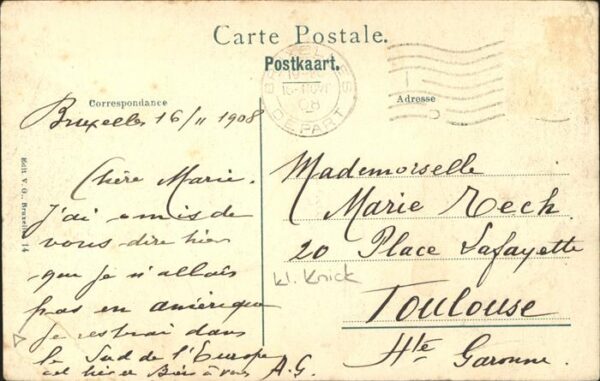 Carte Postale.
Postkaart.
BRUXELLES
16 NOV
08
DEPART
Correspondance
Adresse
Bruxelles 16/11 1908
Chère Marie.
J'ai omis de
vous dire hier
que je n'allais
pas en amérique
Je restrai dans
le Sud de l'Europe
Bien à vous A.G.
Mademoiselle
Marie Rech
20 Place Lafayette
kl. Knick
Toulouse
Hte Garonne.
Edit V. O., Bruxelles 14